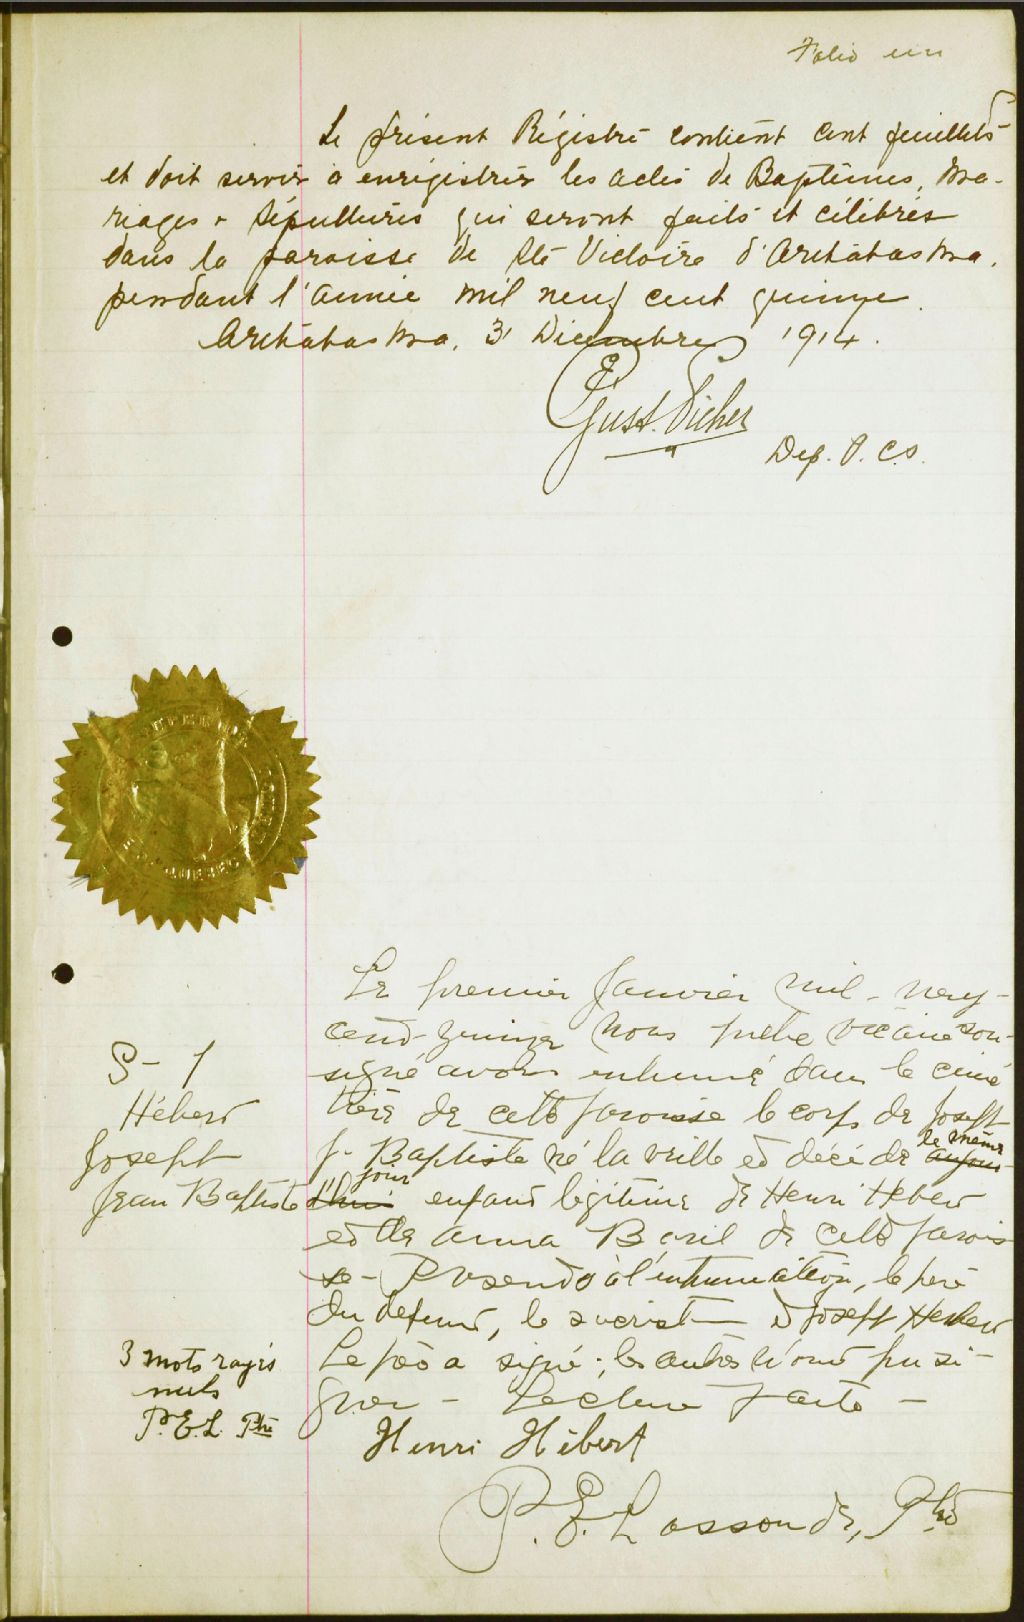 Folio un
Le présent Régistre contient cent feuillets
et doit servir à enrégistrer les actes de Baptêmes, Ma-
riages & Sépultures qui seront faits et célébrés
dans la paroisse de Ste Victoire d'Arthabaska.
pendant l'année mil neuf cent quinze.
Arthabaska, 31 Décembre 1914.
Gust. Picher
Dep. P. C. S.
QUEBEC
Le premier Janvier mil-neuf-
cent-quinze nous prêtre vicaire sous-
signé avons inhumé dans le cime
tière de cette paroisse le corps de Joseph
S - 1
Hébert
Joseph
Jean Baptiste
J- Baptiste né la veille et décédé le même aujour-
jour d'hui enfant légitime de Henri Hébert
et de Anna Baril de cette parois
se - Présents à l'inhumation, le père
du défunt, le sacristain et Joseph Hébert
Le père a signé; les autres n'ont pu si-
gner - Lecture faite -
3 mots rayés
nuls
P.E.L. Ptre
Henri Hébert
P. E. Lassonde, Ptre